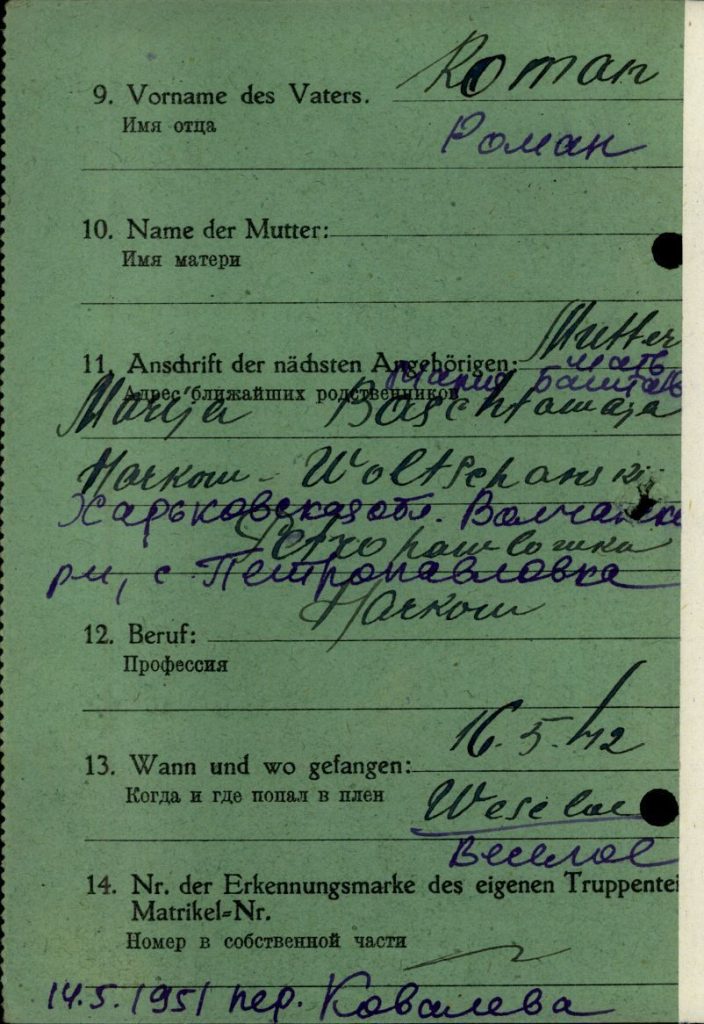 Roman
9. Vorname des Vaters.
Имя отца
Роман
10. Name der Mutter:
Имя матери
Mutter
11. Anschrift der nächsten Angehörigen:
мать
Адрес ближайших родственников
Мария Баштов
Marija
Харьковская обл. Волчанск
рн, с Петропавловка
12. Beruf:
Профессия
16.5.42
13. Wann und wo gefangen:
Когда и где попал в плен
Weseloe
Веселое
14. Nr. der Erkennungsmarke des eigenen Truppentei
Matrikel-Nr.
Номер в собственной части
14.5.1951 пер. Ковалева